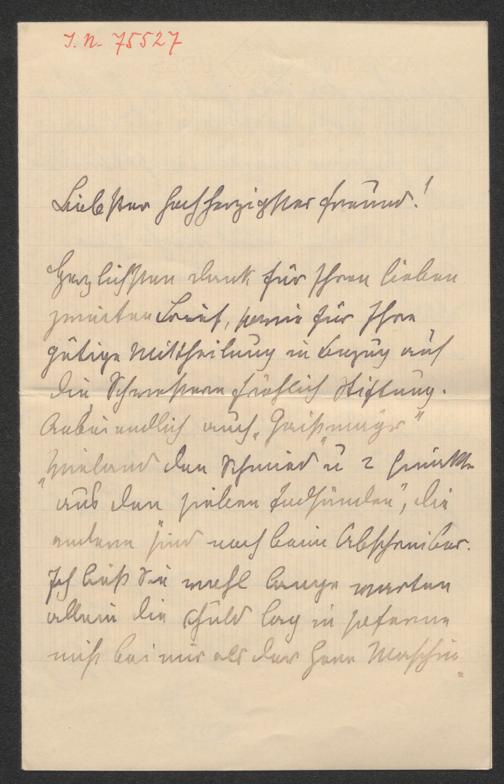 I. N. 75527
Liebster hochherzigster Freund!
Herzlichsten Dank für Ihren lieben
zweiten Brief, sowie für Ihre
gütige Mittheilung in Bezug auf
die Schwestern Fröhlich Stiftung.
Anbei endlich auch „Gaismayr"
„Wieland den Schmied" u 2
aus den sieben Todsünden", die
andern sind noch beim Abschreiber.
Ich ließ Sie wohl lange warten
allein die Schuld lag in soferne
nicht bei mir als der Herr Maschin